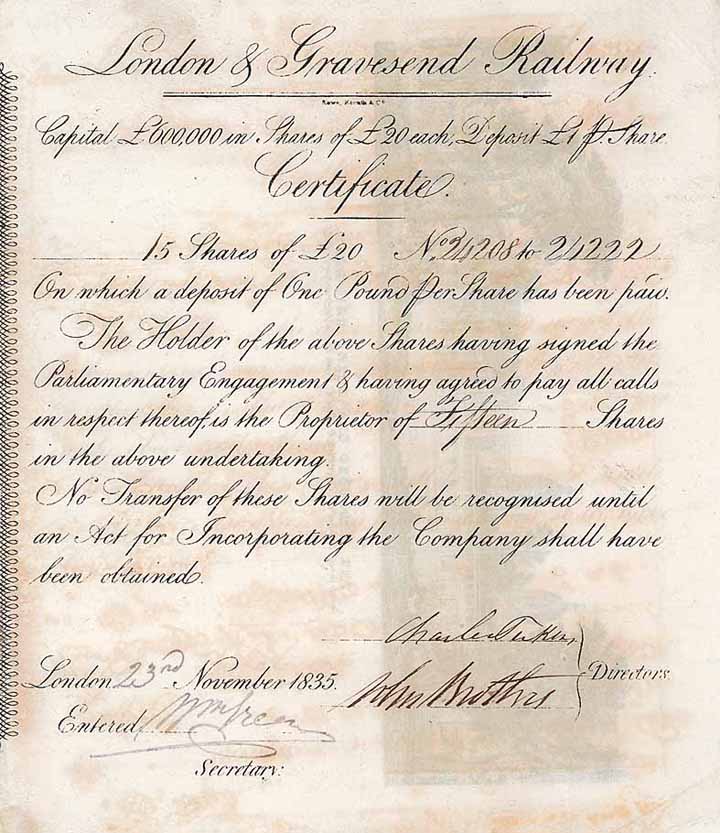 London & Gravesend Railway.
Capital £600,000 in Shares of £20 each, Deposit £1 p. Share.
Certificate.
15 Shares of £20 No. 24208 to 24222
On which a deposit of One Pound per Share has been paid.
The Holder of the above Shares having signed the
Parliamentary Engagement & having agreed to pay all calls
in respect thereof, is the Proprietor of Fifteen Shares
in the above undertaking.
No Transfer of these Shares will be recognised until
an Act for Incorporating the Company shall have
been obtained.
Charles
London 23rd November 1835.
John Brothers
Directors.
Entered, Wm Green
Secretary: